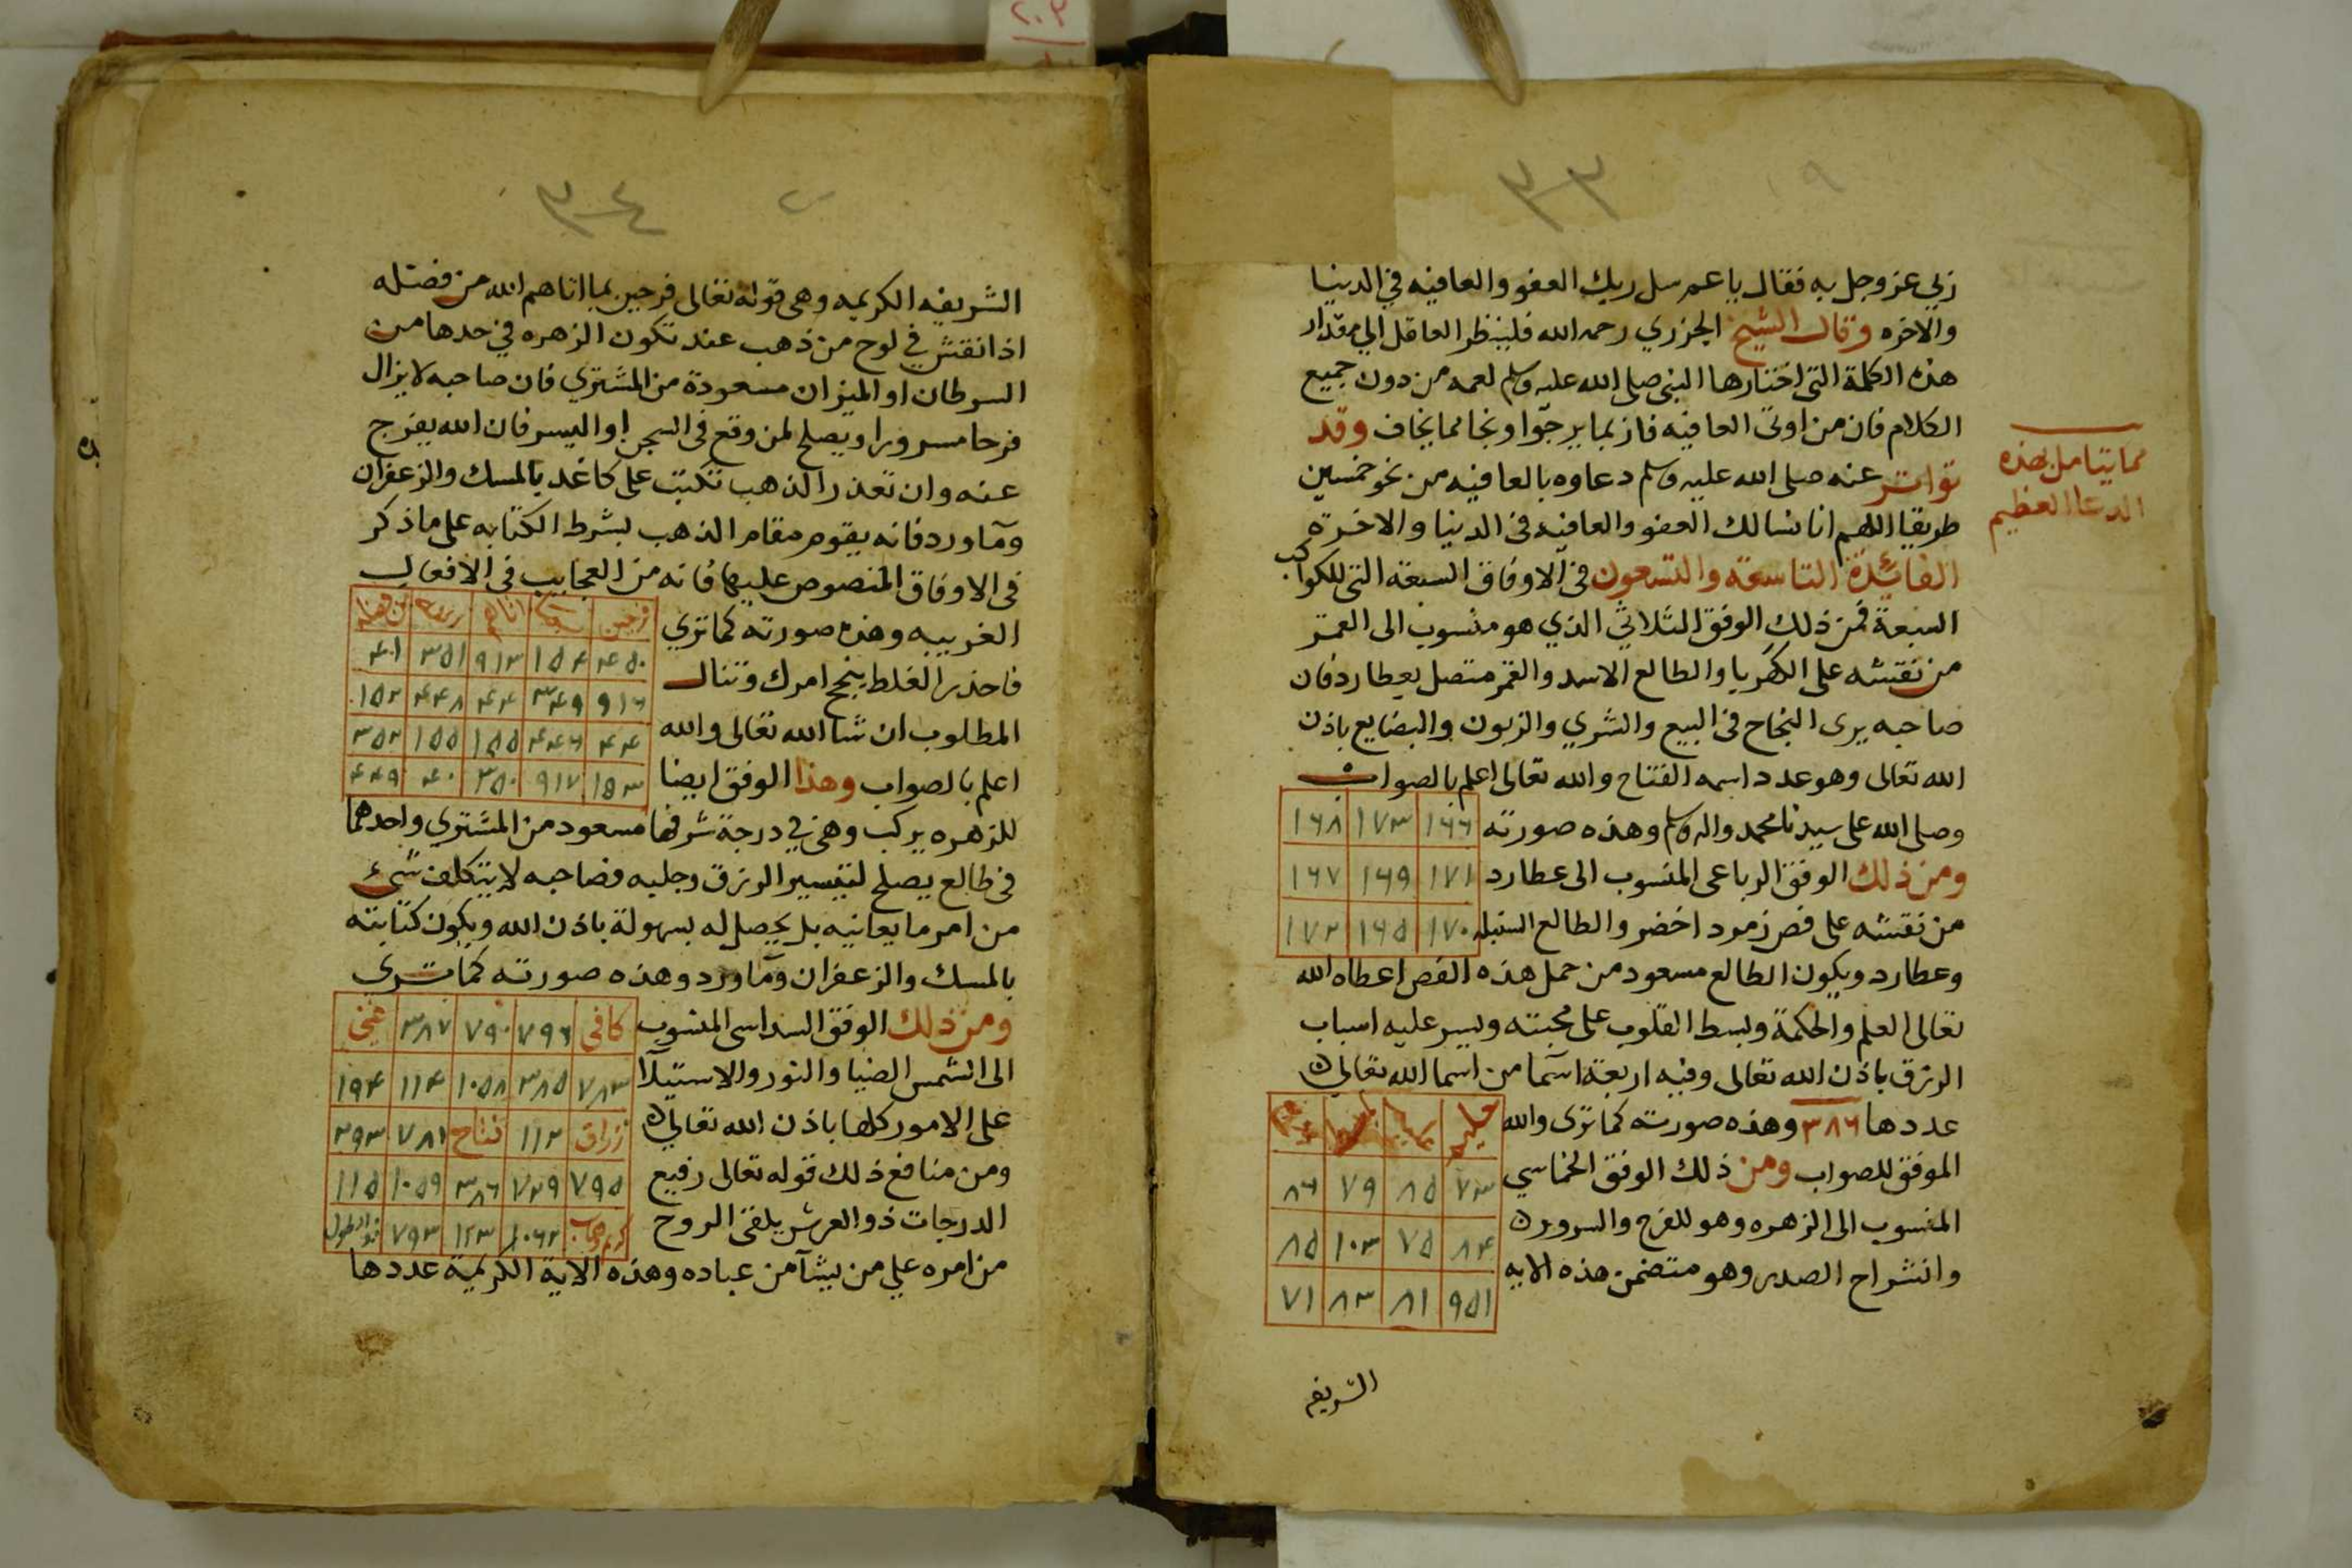 ٣٣
ربي عز وجل به فقال يا عم سل ربك العفو والعافيه في الدنيا
والاخره وقال الشيخ الجزري رحمه الله فلينظر العاقل الي مقدار
هذه الكلمة التي اختارها النبي صلى الله عليه وسلم لعمه من دون جميع
الكلام فان من اوتى العافيه فاز بما يرجوا ونجا مما يخاف وقد
تواتر عنه صلى الله عليه وسلم دعاوه بالعافيه من نحو خمسين
طريقا اللهم انا نسالك العفو والعافيه في الدنيا والاخرة
مما يتامل بهذه
الدعا العظيم
الفائدة التاسعة والتسعون في الاوفاق السبعة التي للكواكب
السبعة فمن ذلك الوفق الثلاثي الذي هو منسوب الى القمر
من نقشه على الكهربا والطالع الاسد والقمر متصل بعطارد فان
صاحبه يرى النجاح في البيع والشري والزبون والبضايع باذن
الله تعالى وهو عدد اسمه الفتاح والله تعالى اعلم بالصواب
وصلى الله على سيدنا محمد واله وسلم وهذه صورته
١٦٦ ١٧٣ ١٦٨
١٧١ ١٦٩ ١٦٧
١٧٠ ١٦٥ ١٧٢
ومن ذلك الوفق الرباعى المنسوب الى عطارد
من نقشه على فص زمرد اخضر والطالع السنبله
وعطارد ويكون الطالع مسعود من حمل هذه الفص اعطاه الله
تعالى العلم والحكمة وبسط القلوب على محبته ويسر عليه اسباب
الرزق باذن الله تعالى وفيه اربعة اسما من اسما الله تعالى
عددها ٣٨٦ وهذه صورته كما ترى والله
الموفق للصواب ومن ذلك الوفق الخماسي
المنسوب الى الزهره وهو للفرح والسرور
وانشراح الصدر وهو متضمن هذه الايه
٧٣ ٨٥ ٧٩ ٨٦
٨٤ ٧٥ ١٠٣ ٨٥
٩٥١ ٨١ ٨٣ ٧١
الشريفه
٣٤
الشريفه الكريمه وهى قوله تعالى فرحين بما اتاهم الله من فضله
اذا نقش في لوح من ذهب عند تكون الزهره في حدها من
السرطان او الميزان مسعودة من المشتري فان صاحبه لا يزال
فرحا مسرورا ويصلح لمن وقع فى السجن او اليسر فان الله يفرج
عنه وان تعذر الذهب تكتب على كاغد بالمسك والزعفران
وما ورد فانه يقوم مقام الذهب بشرط الكتابه على ما ذكر
فى الاوفاق المنصوص عليها فانه من العجايب فى الافعال
الغريبه وهذه صورته كما تري
فاحذر الغلط ينجح امرك وتنال
المطلوب ان شا الله تعالى والله
اعلم بالصواب وهذا الوفق ايضا
فرحين بما اتاهم الله من فضله
٤٥٠ ١٥٤ ٩١٣ ٣٥١ ٤٠١
٩١٦ ٣٤٩ ٤٤ ٤٤٨ ١٥٢
٤٤ ٤٤٦ ١٥٥ ١٥٥ ٣٥٢
١٥٣ ٩١٧ ٣٥٠ ٤٠ ٤٤٩
للزهره يركب وهى في درجة شرفها مسعود من المشتري واحدهما
فى طالع يصلح لتيسير الرزق وجلبه فصاحبه لا يتكلف شىء
من امر ما يعانيه بل يحصل له بسهولة باذن الله ويكون كتابته
بالمسك والزعفران وما ورد وهذه صورته كما ترى
ومن ذلك الوفق السداسى المنسوب
الى الشمس الضيا والنور والاستيلا
على الامور كلها باذن الله تعالى
ومن منافع ذلك قوله تعالى رفيع
الدرجات ذو العرش يلقى الروح
كافى ٧٩٦ ٧٩٠ ٣٨٧ غنى
٧٨٣ ٣٨٥ ١٠٥٨ ١١٤ ١٩٤
رزاق ١١٢ فتاح ٧٨١ ٣٩٣
٧٩٥ ٧٢٩ ٣٨٦ ١٠٥٩ ١١٥
كريم وهاب ١٠٦٢ ١٢٣ ٧٩٣ ذو الطول
من امره علي من يشآ من عباده وهذه الاية الكريمة عددها